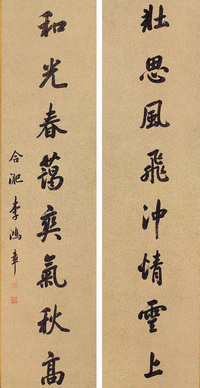 壯思風飛沖情雲上
和光春藹爽氣秋高
合肥李鴻章